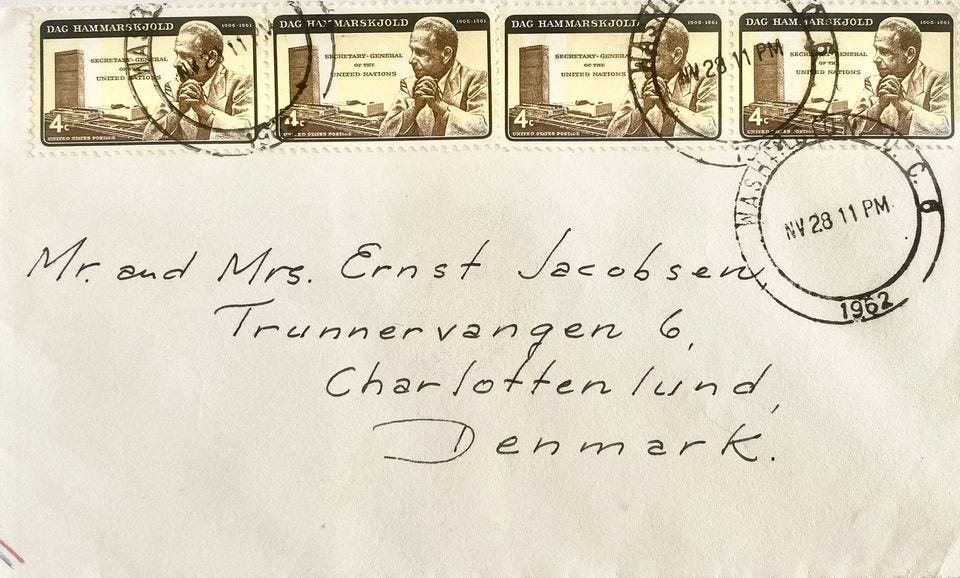 DAG HAMMARSKJOLD 1905-1961
SECRETARY-GENERAL
OF THE
UNITED NATIONS
4c
UNITED STATES POSTAGE
DAG HAMMARSKJOLD 1905-1961
SECRETARY-GENERAL
OF THE
UNITED NATIONS
4c
UNITED STATES POSTAGE
DAG HAMMARSKJOLD 1905-1961
SECRETARY-GENERAL
OF THE
UNITED NATIONS
4c
UNITED STATES POSTAGE
DAG HAMMARSKJOLD 1905-1961
SECRETARY-GENERAL
OF THE
UNITED NATIONS
4c
UNITED STATES POSTAGE
NV 28 11 PM
WASHINGTON D.C. 6
NV 28 11 PM
1962
Mr. and Mrs. Ernst Jacobsen
Trunnervangen 6,
Charlottenlund,
Denmark.